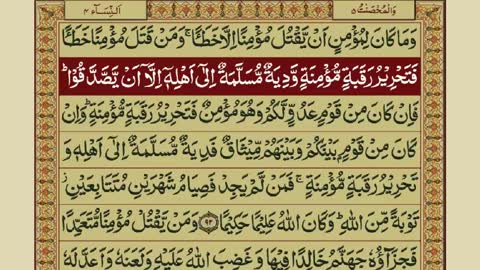 وَالْمُحْصَنٰتُ ۵
اَلنِّسَآء ۴
وَمَا كَانَ لِمُؤْمِنٍ اَنْ يَّقْتُلَ مُؤْمِنًا اِلَّا خَطَـًٔا ۚ وَمَنْ قَتَلَ مُؤْمِنًا خَطَـًٔا
فَتَحْرِيْرُ رَقَبَةٍ مُّؤْمِنَةٍ وَّدِيَةٌ مُّسَلَّمَةٌ اِلٰٓى اَهْلِهٖٓ اِلَّآ اَنْ يَّصَّدَّقُوْا ؕ
فَاِنْ كَانَ مِنْ قَوْمٍ عَدُوٍّ لَّكُمْ وَهُوَ مُؤْمِنٌ فَتَحْرِيْرُ رَقَبَةٍ مُّؤْمِنَةٍ ؕ وَاِنْ
كَانَ مِنْ قَوْمٍۭ بَيْنَكُمْ وَبَيْنَهُمْ مِّيْثَاقٌ فَدِيَةٌ مُّسَلَّمَةٌ اِلٰٓى اَهْلِهٖ وَ
تَحْرِيْرُ رَقَبَةٍ مُّؤْمِنَةٍ ۚ فَمَنْ لَّمْ يَجِدْ فَصِيَامُ شَهْرَيْنِ مُتَتَابِعَيْنِ ؗ
تَوْبَةً مِّنَ اللّٰهِ ؕ وَكَانَ اللّٰهُ عَلِيْمًا حَكِيْمًا ﴿۹۲﴾ وَمَنْ يَّقْتُلْ مُؤْمِنًا مُّتَعَمِّدًا
فَجَزَآؤُهٗ جَهَنَّمُ خَالِدًا فِيْهَا وَغَضِبَ اللّٰهُ عَلَيْهِ وَلَعَنَهٗ وَاَعَدَّ لَهٗ